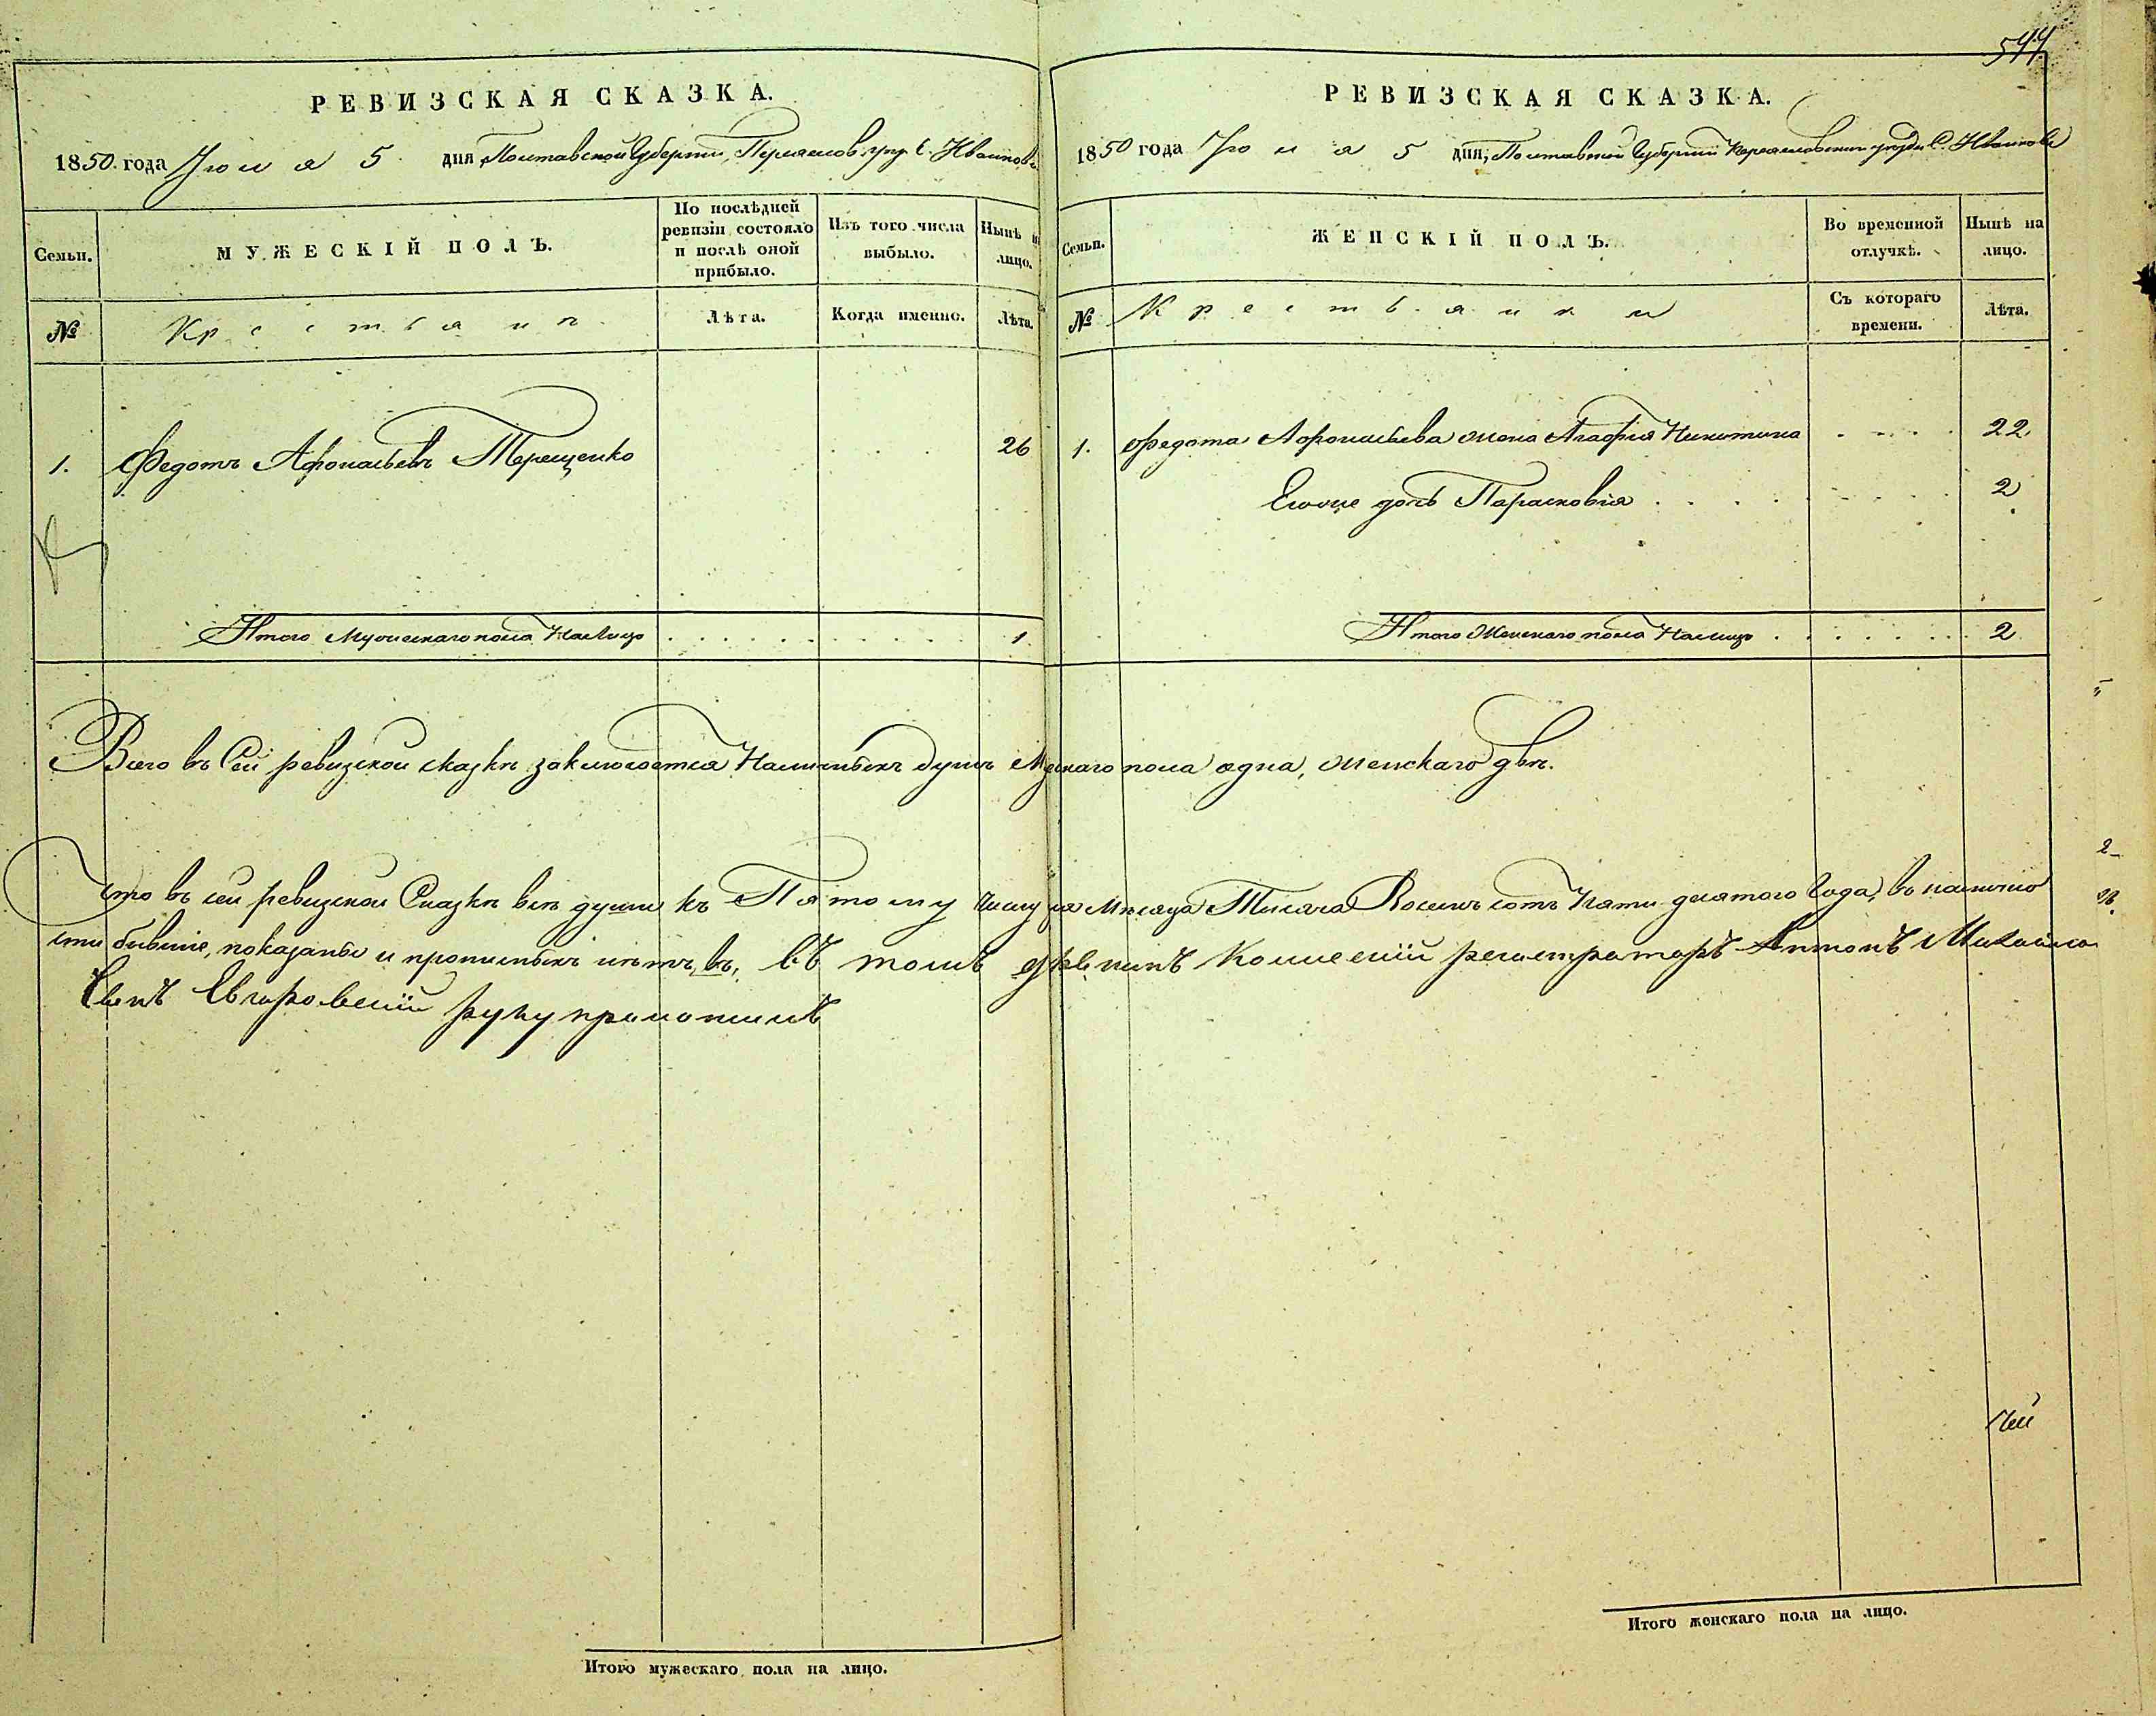 544
РЕВИЗСКАЯ СКАЗКА.
1850 года Июля 5 дня, Полтавской Губернии, Переяслов. уезд. С.
Семьи.
МУЖЕСКІЙ ПОЛЪ.
По послѣдней ревизіи состояло и послѣ оной прибыло.
Изъ того числа выбыло.
Нынѣ на лицо.
№
Крестьяне
Лѣта.
Когда именно.
Лѣта.
1. Федотъ Афонасьевъ Терещенко 26
Итого Мужескаго пола На лицо 1
РЕВИЗСКАЯ СКАЗКА.
1850 года Июля 5 дня, Полтавской Губернии Переясловскаго уезда С.
Семьи.
ЖЕНСКІЙ ПОЛЪ.
Во временной отлучкѣ.
Нынѣ на лицо.
№
Крестьянки
Съ котораго времени.
Лѣта.
1. Федота Афонасьева жена Агафия Никитина 22
Его же дочь Парасковія 2
Итого Женскаго пола На лицо 2
Всего въ Сей ревизской сказкѣ заключается Наличныхъ душъ Мужескаго пола одна, женскаго двѣ.
Что въ сей ревизской Сказкѣ всѣ души къ Пятому числу Июля Мѣсяца Тысяча Восемь сотъ Пяти десятого Года, въ налично
сти бывшіе, показаны и прописныхъ нѣтъ, въ томъ Колležскій регистраторъ Антонъ Михайло
вичъ руку приложилъ
Итого мужескаго пола на лицо.
Итого женскаго пола на лицо.